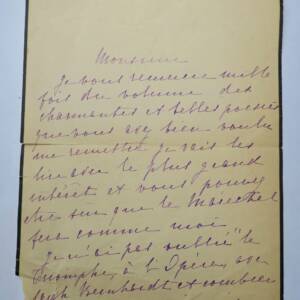 Monsieur
Je vous remercie mille
fois du volume des
charmantes et belles poésies
que vous avez bien voulu
me remettre je vais les
lire avec le plus grand
intérêt et vous pouvez
être sur que le Maréchal
fera comme moi
Je n'ai pas oublié "le
Triomphe" à l'Opéra, avec
Sarah Bernhardt et combien